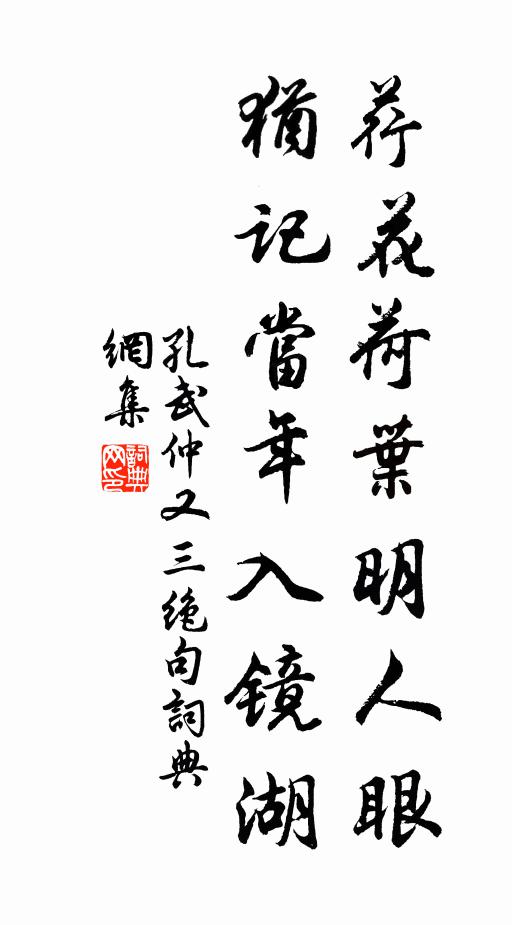 荷花荷葉明人眼
猶記當年入鏡湖
孔武仲又三绝句詞典
網集
詞典网印